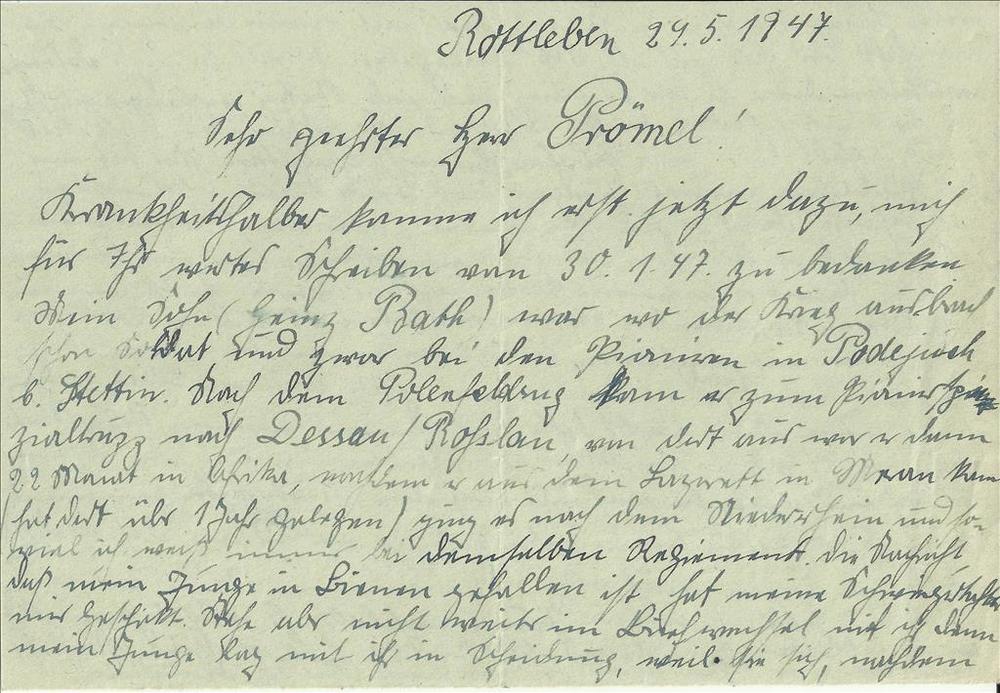 Rottleben 29.5.1947.
Sehr geehrter Herr Prömel!
Krankheitshalber komme ich erst jetzt dazu, mich
für Ihr wertes Schreiben vom 30.1.47. zu bedanken
Mein Sohn (Heinz Rath) war wo der Krieg ausbrach
schon Soldat und zwar bei den Pionieren in Podejuch
b. Stettin. Nach dem Polenfeldzug kam er zum Pionierspe
zialtrupp nach Dessau/Rosslau, von dort aus war er dann
22 Monat in Afrika, nachdem er aus dem Lazarett in Meran kam
(hat dort über 1 Jahr gelegen) ging es nach dem Niederrhein und so-
viel ich weiß immer bei demselben Regiement. Die Nachricht
daß mein Junge in Bienen gefallen ist hat meine Schwiegertochter
mir geschickt. Stehe aber nicht weiter im Briefwechsel mit ihr denn
mein Junge lag mit ihr in Scheidung, weil sie sich, nachdem